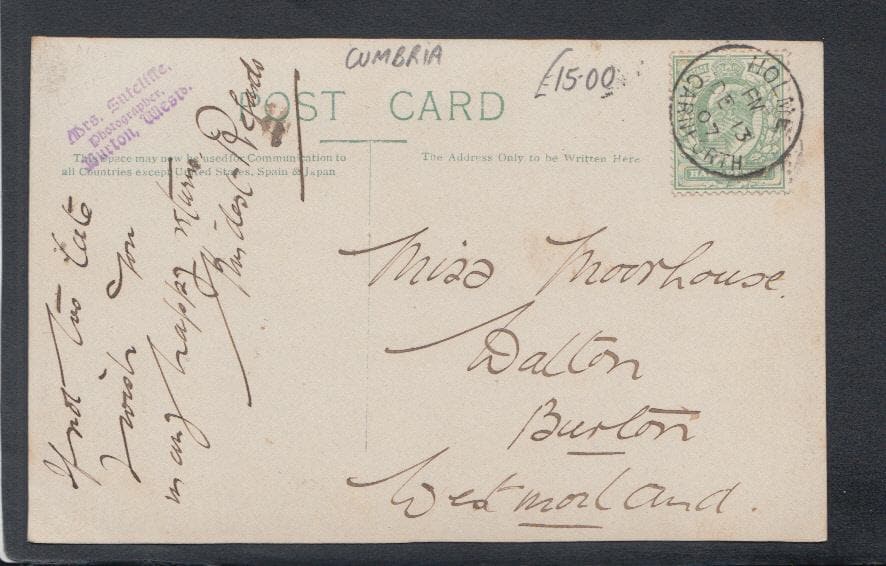 CUMBRIA
£15-00
Mrs. Sutcliffe,
Photographer,
Burton, Westd.
POST CARD
This space may now be used for Communication to
all Countries except United States, Spain & Japan
The Address Only to be Written Here
HOLME
CARNFORTH
DE 13
07
If not too late
I wish you
many happy returns
Kindest Regards
Miss Moorhouse.
Dalton
Burton
Westmorland.